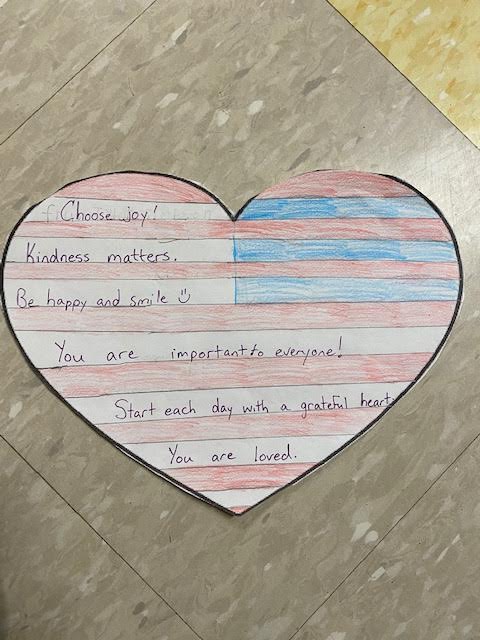 Choose joy!
Kindness matters.
Be happy and smile ☺
You are important to everyone!
Start each day with a grateful heart.
You are loved.